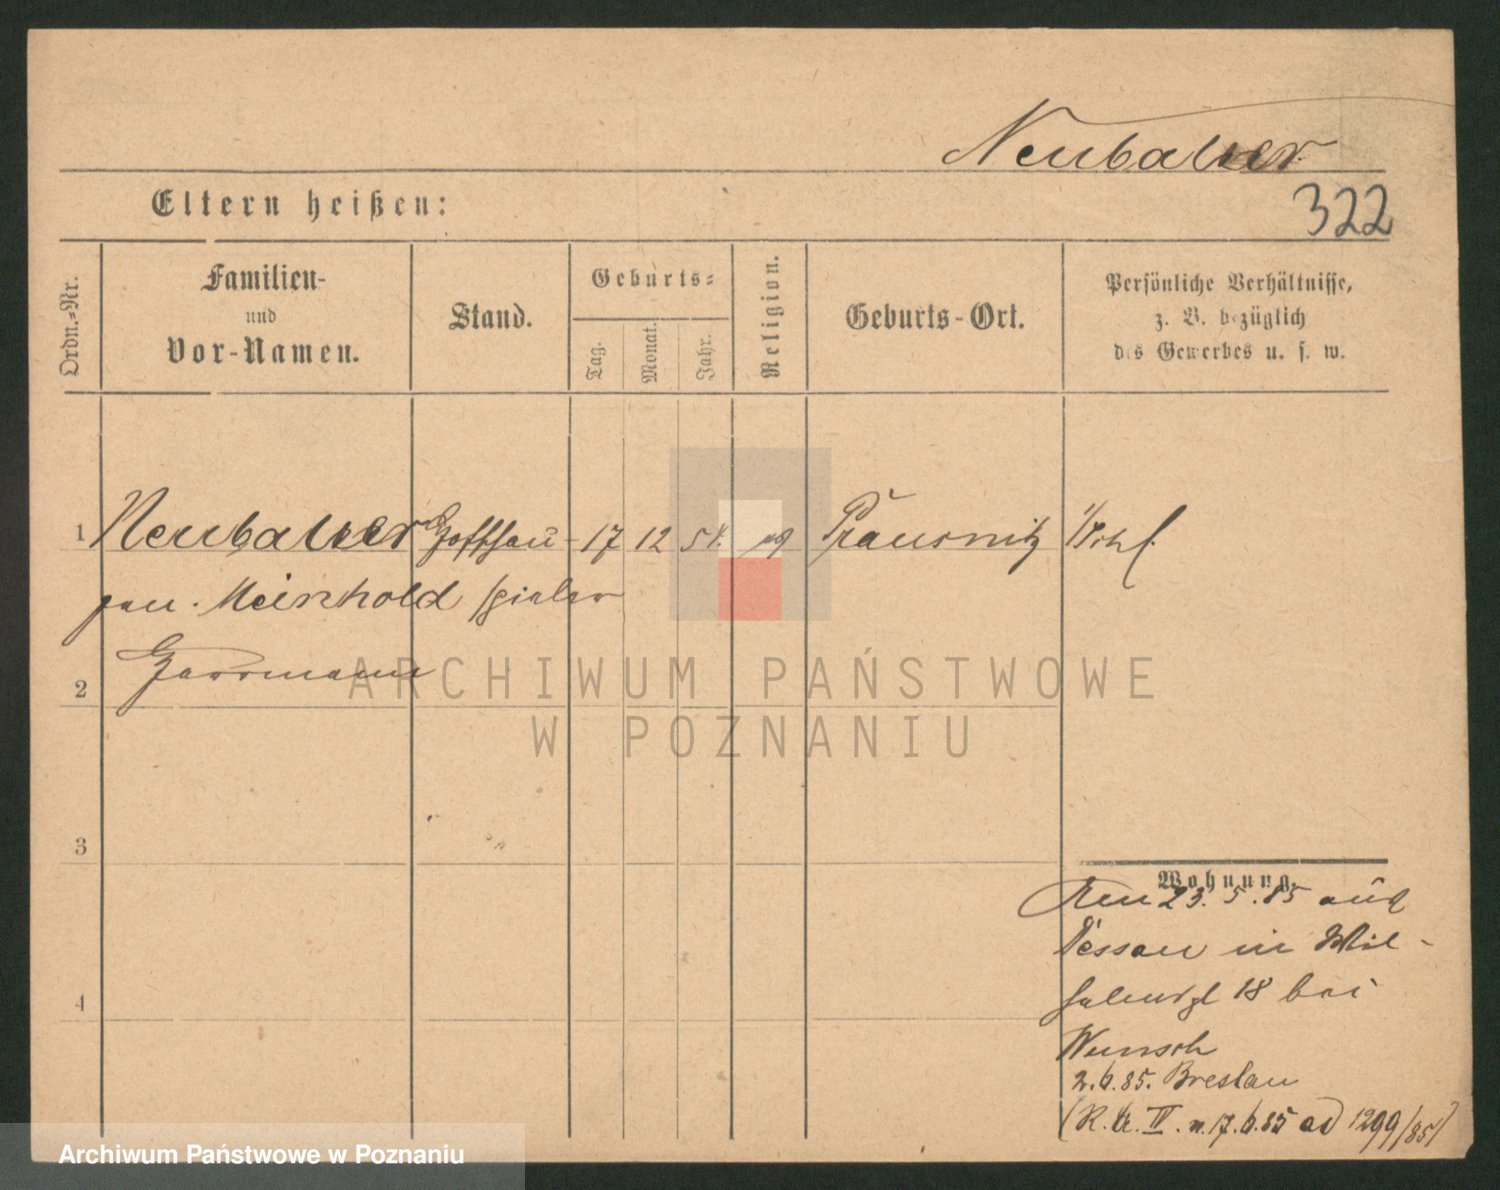 Neubauer
Eltern heißen:
322
Ordn.-Nr.
Familien-
und
Vor-Namen.
Stand.
Geburts-
Tag.
Monat.
Jahr.
Religion.
Geburts-Ort.
Persönliche Verhältnisse,
z. B. bezüglich
des Gewerbes u. s. w.
1 Neubauer 17 12 Prausnitz
gen. Meinhold
2
3
4
Wohnung.
Den 23.5.85 aus
Dessau in Wil-
18 bei
Wunsch
2.6.85. Breslau
IV. 17.6.85 ad 1299/85)
ARCHIWUM PAŃSTWOWE
W POZNANIU
Archiwum Państwowe w Poznaniu